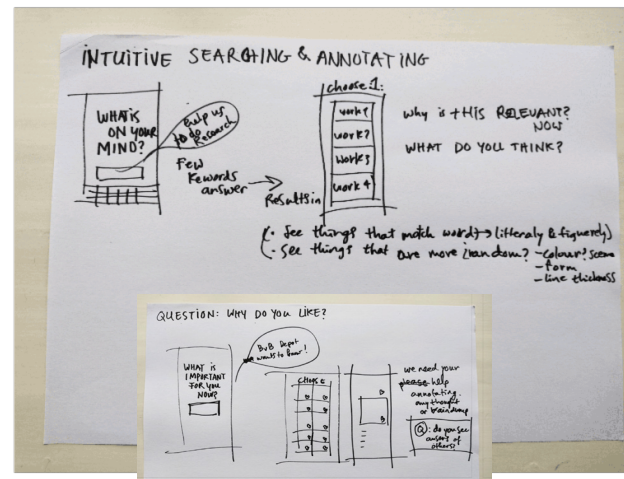 INTUITIVE SEARCHING & ANNOTATING
WHAT IS
ON YOUR
MIND?
Help us
to do
Research
Few
Kewords
answer
Results in
choose 1:
work 1
work 2
work 3
work 4
Why is THIS RELEVANT?
NOW
WHAT DO YOU THINK?
• See things that match words → (litteraly & figuarely)
• See things that are more random? - colour? scene
- form
- line thickness
QUESTION: WHY DO YOU LIKE?
WHAT IS
IMPORTANT
FOR YOU
NOW?
BvB Depot
wants to know!
CHOOSE
we need your
please help
annotating.
any thought
or braindump
Q: do you see
answers of
others?